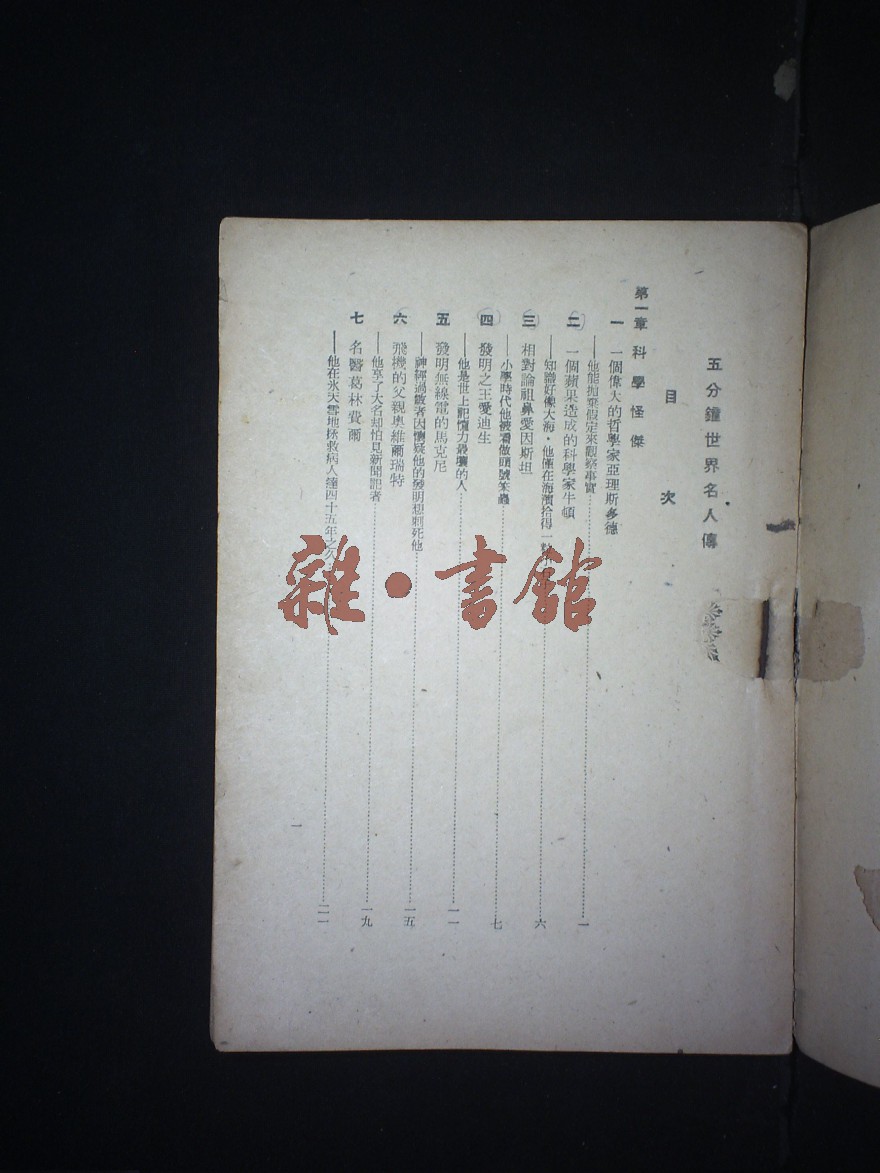 五分鐘世界名人傳
目次
第一章 科學怪傑
一 一個偉大的哲學家亞理斯多德
——他能拋棄假定來觀察事實……一
二 一個蘋果造成的科學家牛頓
——知識好像大海，他僅在海濱拾得一……六
三 相對論祖鼻愛因斯坦
——小學時代他被看做頭號笨蟲……七
四 發明之王愛迪生
——他是世上記憶力最壞的人……一一
五 發明無線電的馬克尼
——神經過敏者因懷疑他的發明想刺死他……一五
六 飛機的父親奧維爾瑞特
——他享了大名却怕見新聞記者……一九
七 名醫葛林費爾
——他在氷天雪地拯救病人達四十五年之久……二一
一
雜·書館